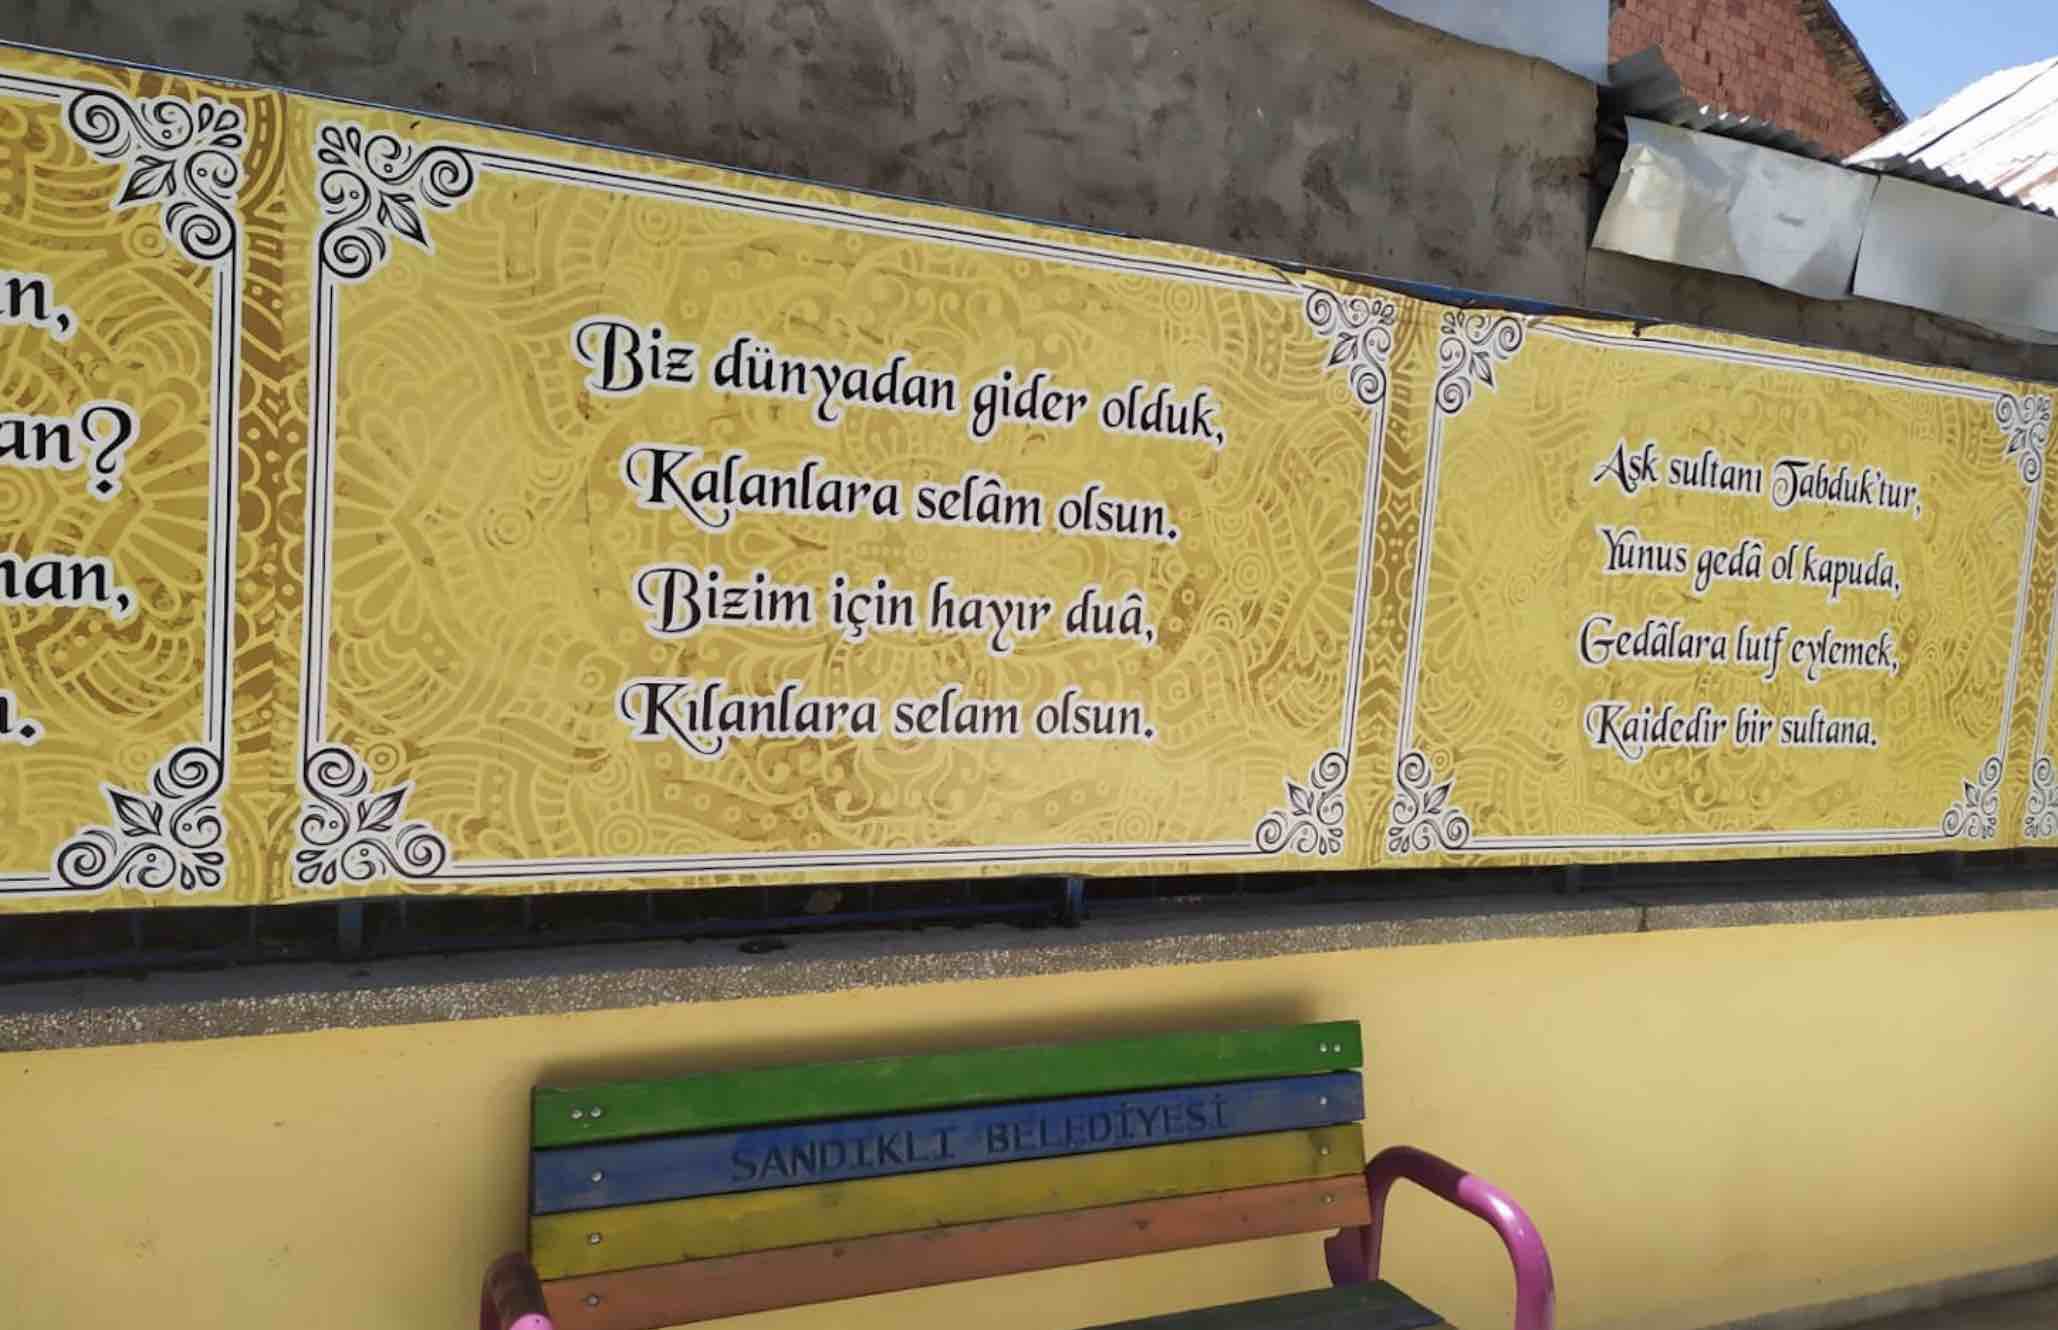 Biz dünyadan gider olduk,
Kalanlara selâm olsun.
Bizim için hayır duâ,
Kılanlara selam olsun.
Aşk sultanı Tabduk'tur,
Yunus gedâ ol kapuda,
Gedâlara lutf eylemek,
Kaidedir bir sultana.
SANDIKLI BELEDİYESİ